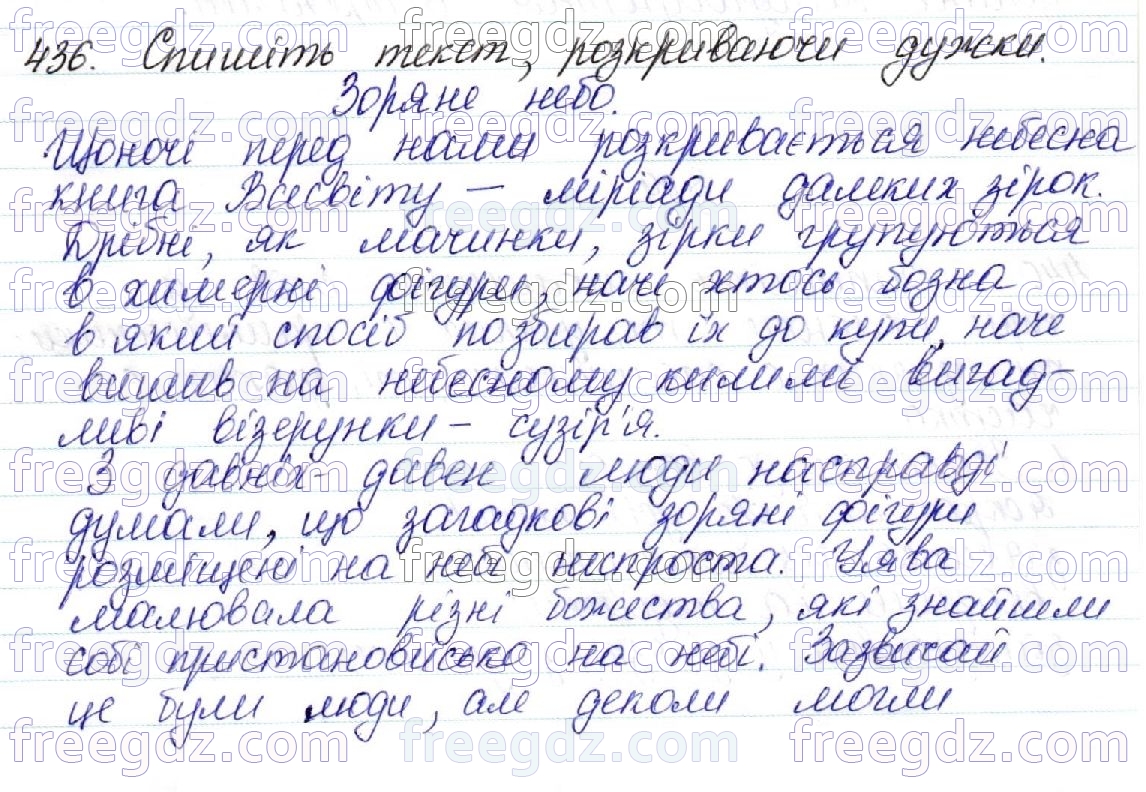 436. Спишіть текст, розкриваючи дужки.
Зоряне небо.
Щоночі перед нами розкривається небесна
книга Всесвіту — міріади далеких зірок.
Дрібні, як мачинки, зірки групуються
в химерні фігури, наче хтось бозна
в який спосіб позбирав їх до купи, наче
вишив на небесному килимі вигад-
ливі візерунки – сузір'я.
З давніх-давен люди насправді
думали, що загадкові зоряні фігури
розміщені на небі неспроста. Уява
малювала різні божества, які знайшли
собі пристановисько на небі. Зазвичай
це були люди, але деколи могли